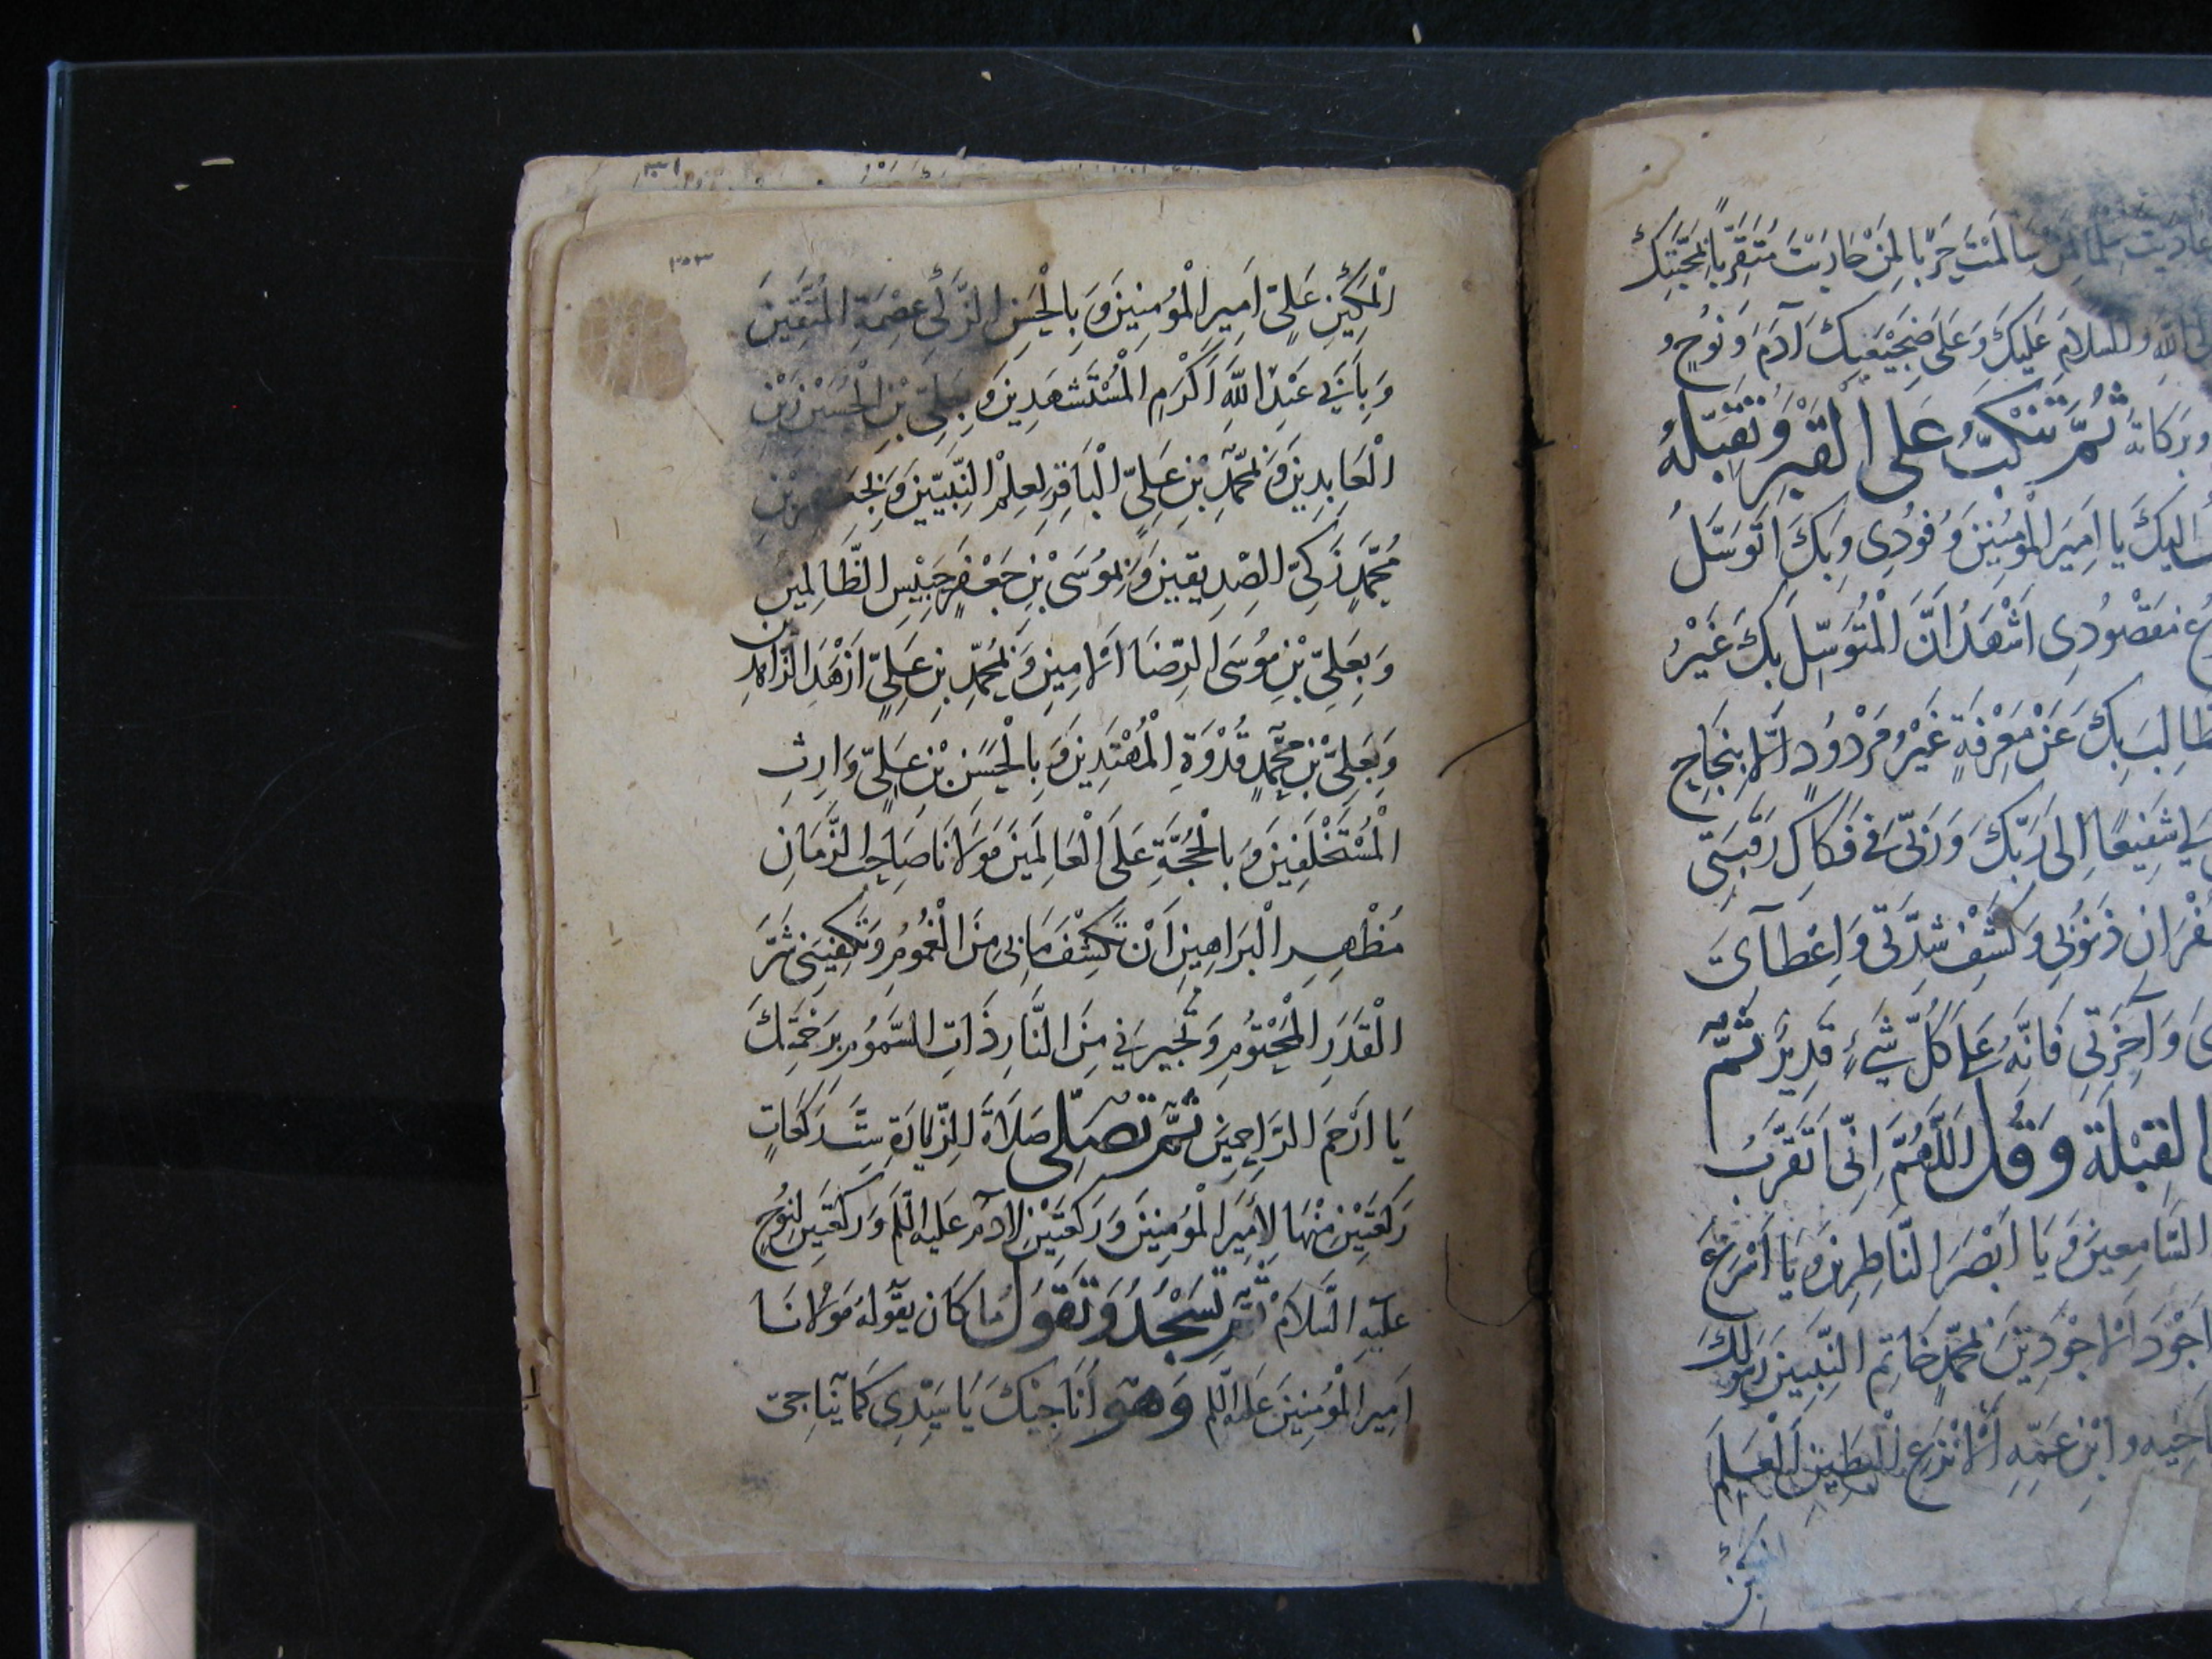 عاديت سلما لمن سالمت حربا لمن حاربت متقربا بمحبتك
والسلام عليك وعلى ضجيعيك آدم ونوح و
وبركاته ثم تنكب على القبر وتقبله
اليك يا امير المؤمنين وفودى وبك اتوسل
مقصودى اشهد ان المتوسل بك غير
طالب بك عن معرفة غير مردود الا بنجاح
لي شفيعا الى ربك وربى فى فكاك رقبتى
غفران ذنوبى وكشف شدتى واعطآى
وآخرتى فانه على كل شيء قدير ثم
القبلة وقل اللهم انى اتقرب
السامعين ويا ابصر الناظرين ويا اسرع
اجود الاجودين بمحمد خاتم النبيين رسولك
اخيه وابن عمه الانزع البطين العلم
المكين
٣٥٣
المكين على امير المؤمنين وبالحسن الزكى عصمة المتقين
وبابى عبد الله اكرم المستشهدين وبعلى بن الحسين زين
العابدين وبمحمد بن على الباقر لعلم النبيين وبجعفر بن
محمد زكى الصديقين وبموسى بن جعفر حبيس الظالمين
وبعلى بن موسى الرضا الامين وبمحمد بن على ازهد الزاهدين
وبعلى بن محمد قدوة المهتدين وبالحسن بن على وارث
المستخلفين وبالحجة على العالمين مولانا صاحب الزمان
مظهر البراهين ان تكشف ما بى من الغموم وتكفينى شر
القدر المحتوم وتجيرنى من النار ذات السموم برحمتك
يا ارحم الراحمين ثم تصلى صلاة الزيارة ست ركعات
ركعتين منها لأمير المؤمنين وركعتين لادم عليه السلم وركعتين لنوح
عليه السلام ثم تسجد وتقول ما كان يقوله مولانا
امير المؤمنين عليه السلم وهو اناجيك يا سيدى كما يناجى